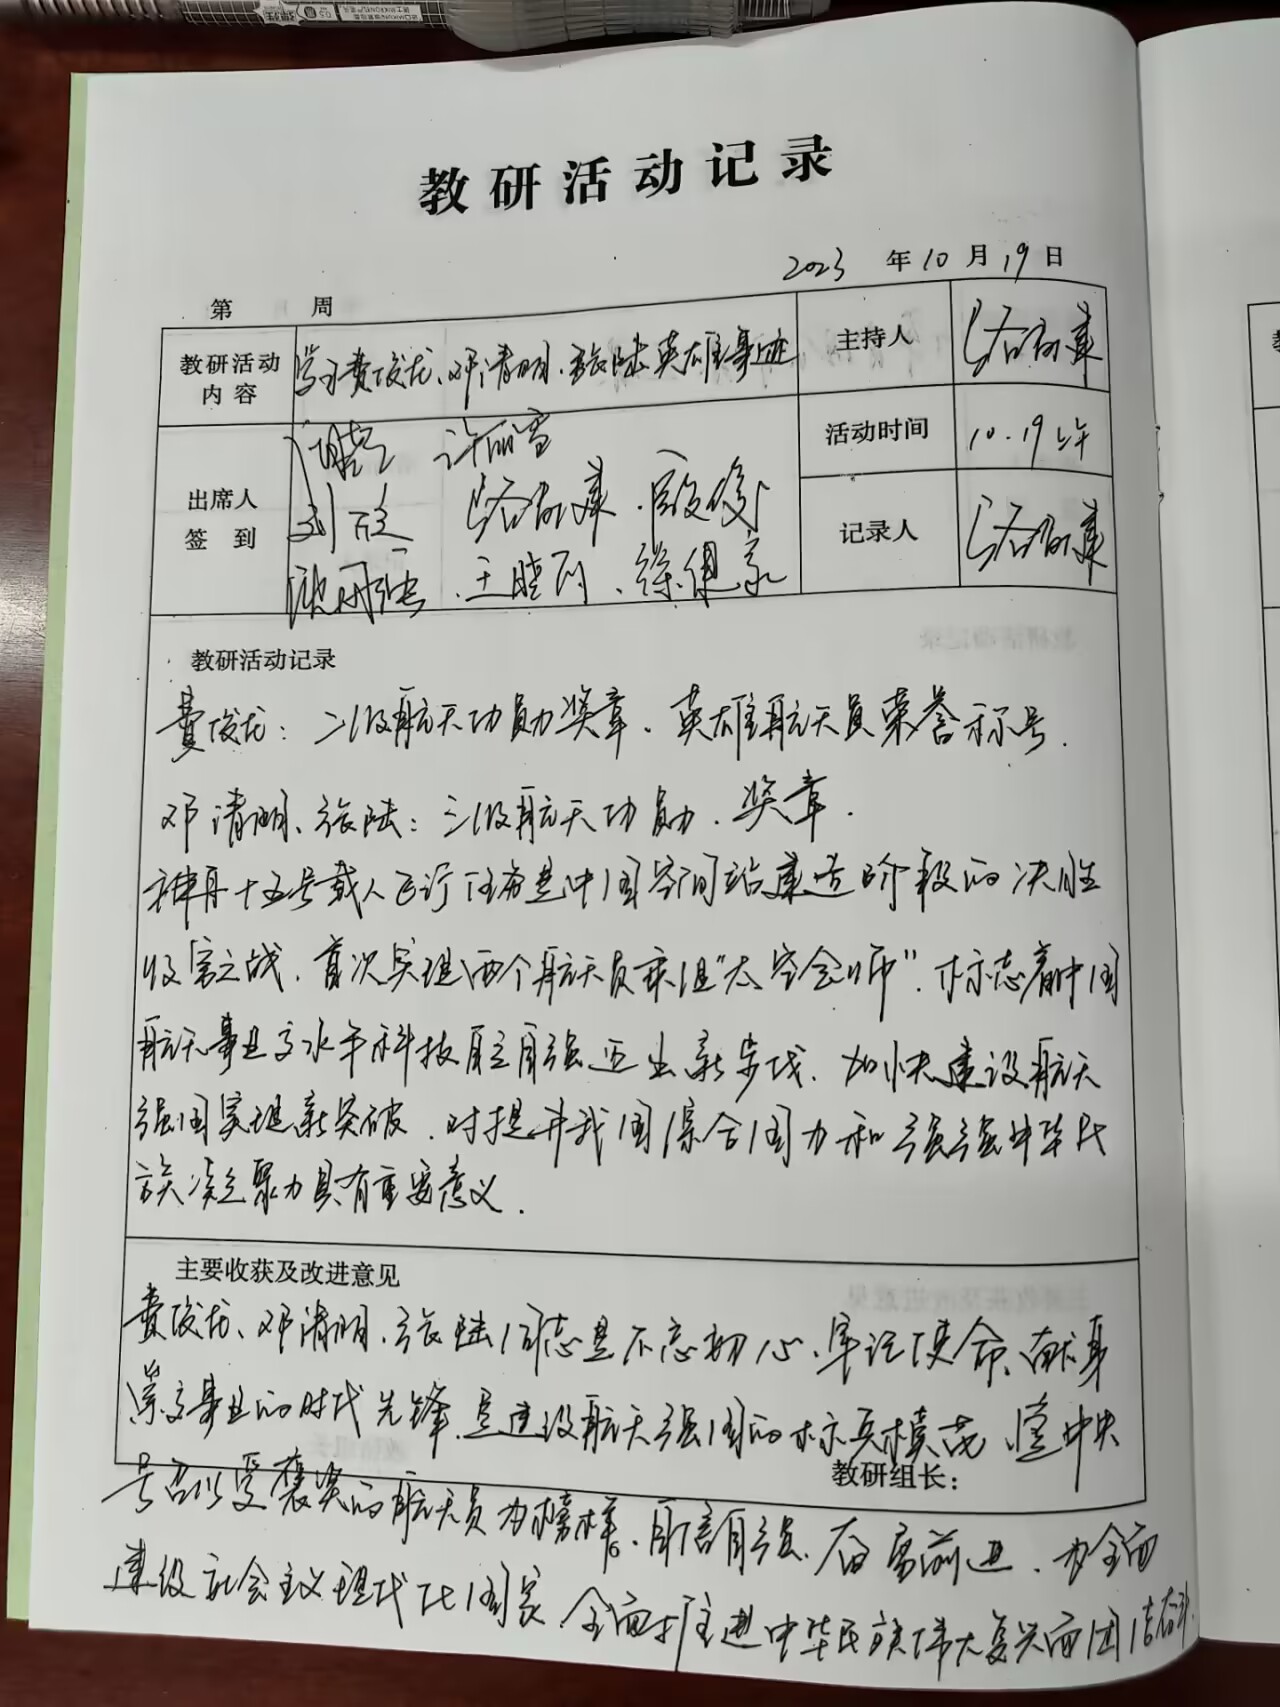 教研活动记录
2023 年 10 月 19 日
第 周
教研活动内容
学习费俊龙、邓清明、张陆英雄事迹
主持人
活动时间
10.19上午
出席人签到
许丽雪
刘欣
王晓丽
徐健
记录人
教研活动记录
费俊龙：二级航天功勋奖章、英雄航天员荣誉称号.
邓清明、张陆：三级航天功勋、奖章.
神舟十五号载人飞行任务是中国空间站建造阶段的决胜
收官之战、首次实现两个航天员乘组"太空会师".标志着中国
航天事业高水平科技自立自强迈出新步伐、加快建设航天
强国实现新突破、对提升我国综合国力和强强中华民
族凝聚力具有重要意义.
主要收获及改进意见
费俊龙、邓清明、张陆同志是不忘初心、牢记使命、献身
崇高事业的时代先锋、是建设航天强国的标兵模范、党中央
教研组长：
号召以受褒奖的航天员为榜样、自信自强、奋勇前进、为全面
建设社会主义现代化国家、全面推进中华民族伟大复兴而团结奋斗.